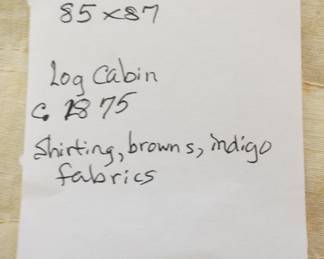 85x87
Log Cabin
c. 1875
Shirting, browns, indigo
fabrics